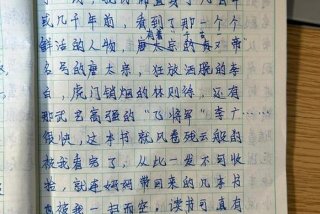 或几千年前，看到了那一个个
鲜活的人物，有着“千古一帝”
名号的唐太宗，狂放洒脱的李
白，虎门销烟的林则徐，还有
那武艺高强的“飞将军”李广……
很快，这本书就风卷残云般的
被我看完了，从此一发不可收
拾，就连妈妈带回来的几本书
也被我一扫而空，读书可真有